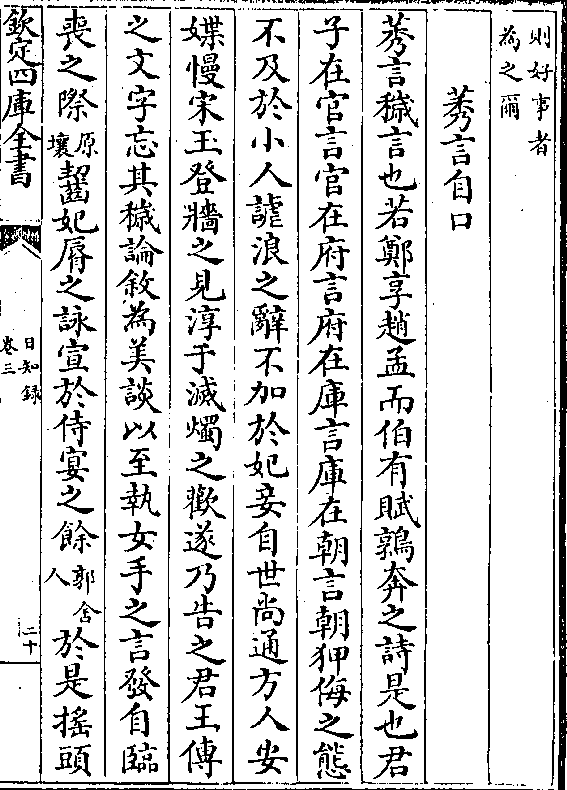 則好事者
為之爾
莠言自口
莠言穢言也若鄭享趙孟而伯有賦鶉奔之詩是也君
子在官言官在府言府在庫言庫在朝言朝狎侮之態
不及於小人謔浪之辭不加於妃妾自世尚通方人安
媟慢宋玉登牆之見淳于滅燭之歡遂乃告之君王傳
之文字忘其穢論敘為美談以至執女手之言發自臨
喪之際原壤齧妃脣之詠宣於侍宴之餘郭舍人於是搖頭
欽定四庫全書
日知錄
卷三
二十